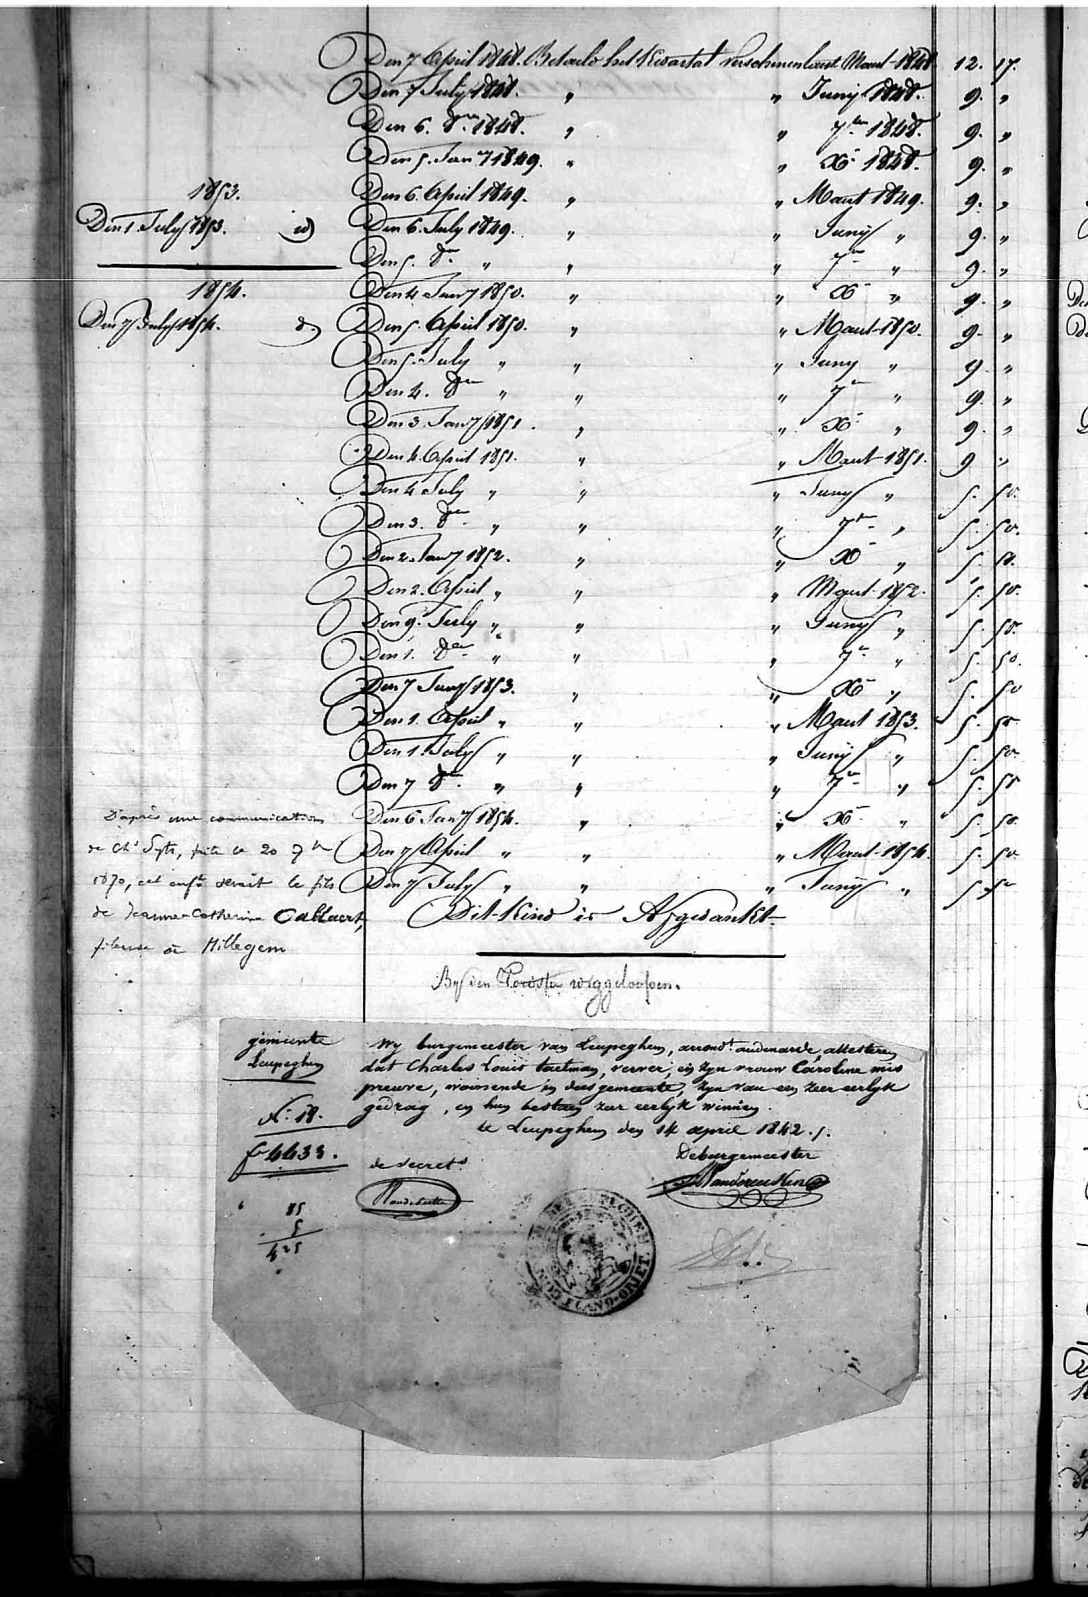 Den 7 April 1848. Betaeld het Kwartal verschenen laest Maert 1848. 12. 17.
Den 7 July 1848. " " Juny 1848. 9. "
Den 6. 8er 1848. " " 7ber 1848. 9. "
Den 5. Jany 1849. " " Xr 1848. 9. "
1853.
Den 6. April 1849. " " Maert 1849. 9. "
Den 1. July 1853. id)
Den 6. July 1849. " " Juny " 9. "
Den 5. 8er " " " 7er " 9. "
1854.
Den 4. Jany 1850. " " Xr " 9. "
Den 7 July 1854. d.)
Den 5. April 1850. " " Maert 1850. 9. "
Den 5. July " " " Juny " 9. "
Den 4. 8er " " " 7r " 9. "
Den 3. Jany 1851. " " Xr " 9. "
Den 4. April 1851. " " Maert 1851. 9 "
Den 4 July " " " Juny " 5. 50.
Den 3. 8er " " " 7er " 5. 50.
Den 2. Jany 1852. " " X " 5. 50.
Den 2. April " " " Maert 1852. 5. 50.
Den 9. July " " " Juny " 5. 50.
Den 1. 8er " " " 7r " 5. 50.
Den 7 Jany 1853. " " Xr " 5. 50
Den 1. April " " " Maert 1853. 5. 50
Den 1. July " " " Juny " 5. 50.
Den 7 8er " " " 7r " 5. 50
Den 6 Jany 1854. " " Xr " 5. 50.
Den 7 April " " " Maert 1854. 5. 50
Den 7 July " " " Juny " 5. 50
D'après une communication
de Chs Syts, faite le 20 7bre
1870, cet enft serait le fils
de Jeanne-Catherine Callaert,
fileuse à Hillegem
Dit Kind is Afgedankt
By den Voedster weggeloopen.
gemeente
Leupeghem
N.° 18.
f° 4433.
85
5
425
Wy burgemeester van Leupeghem, arrondt audenarde attesteren
dat Charles Louis taelman, verver, en zyn vrouw Caroline mis
preuve, woonende in dees gemeente, zyn van een zeer eerlyk
gedrag, en hun bestaen zeer eerlyk winnen.
te Leupeghem den 14 april 1842 ./.
de secrets
De burgemeester